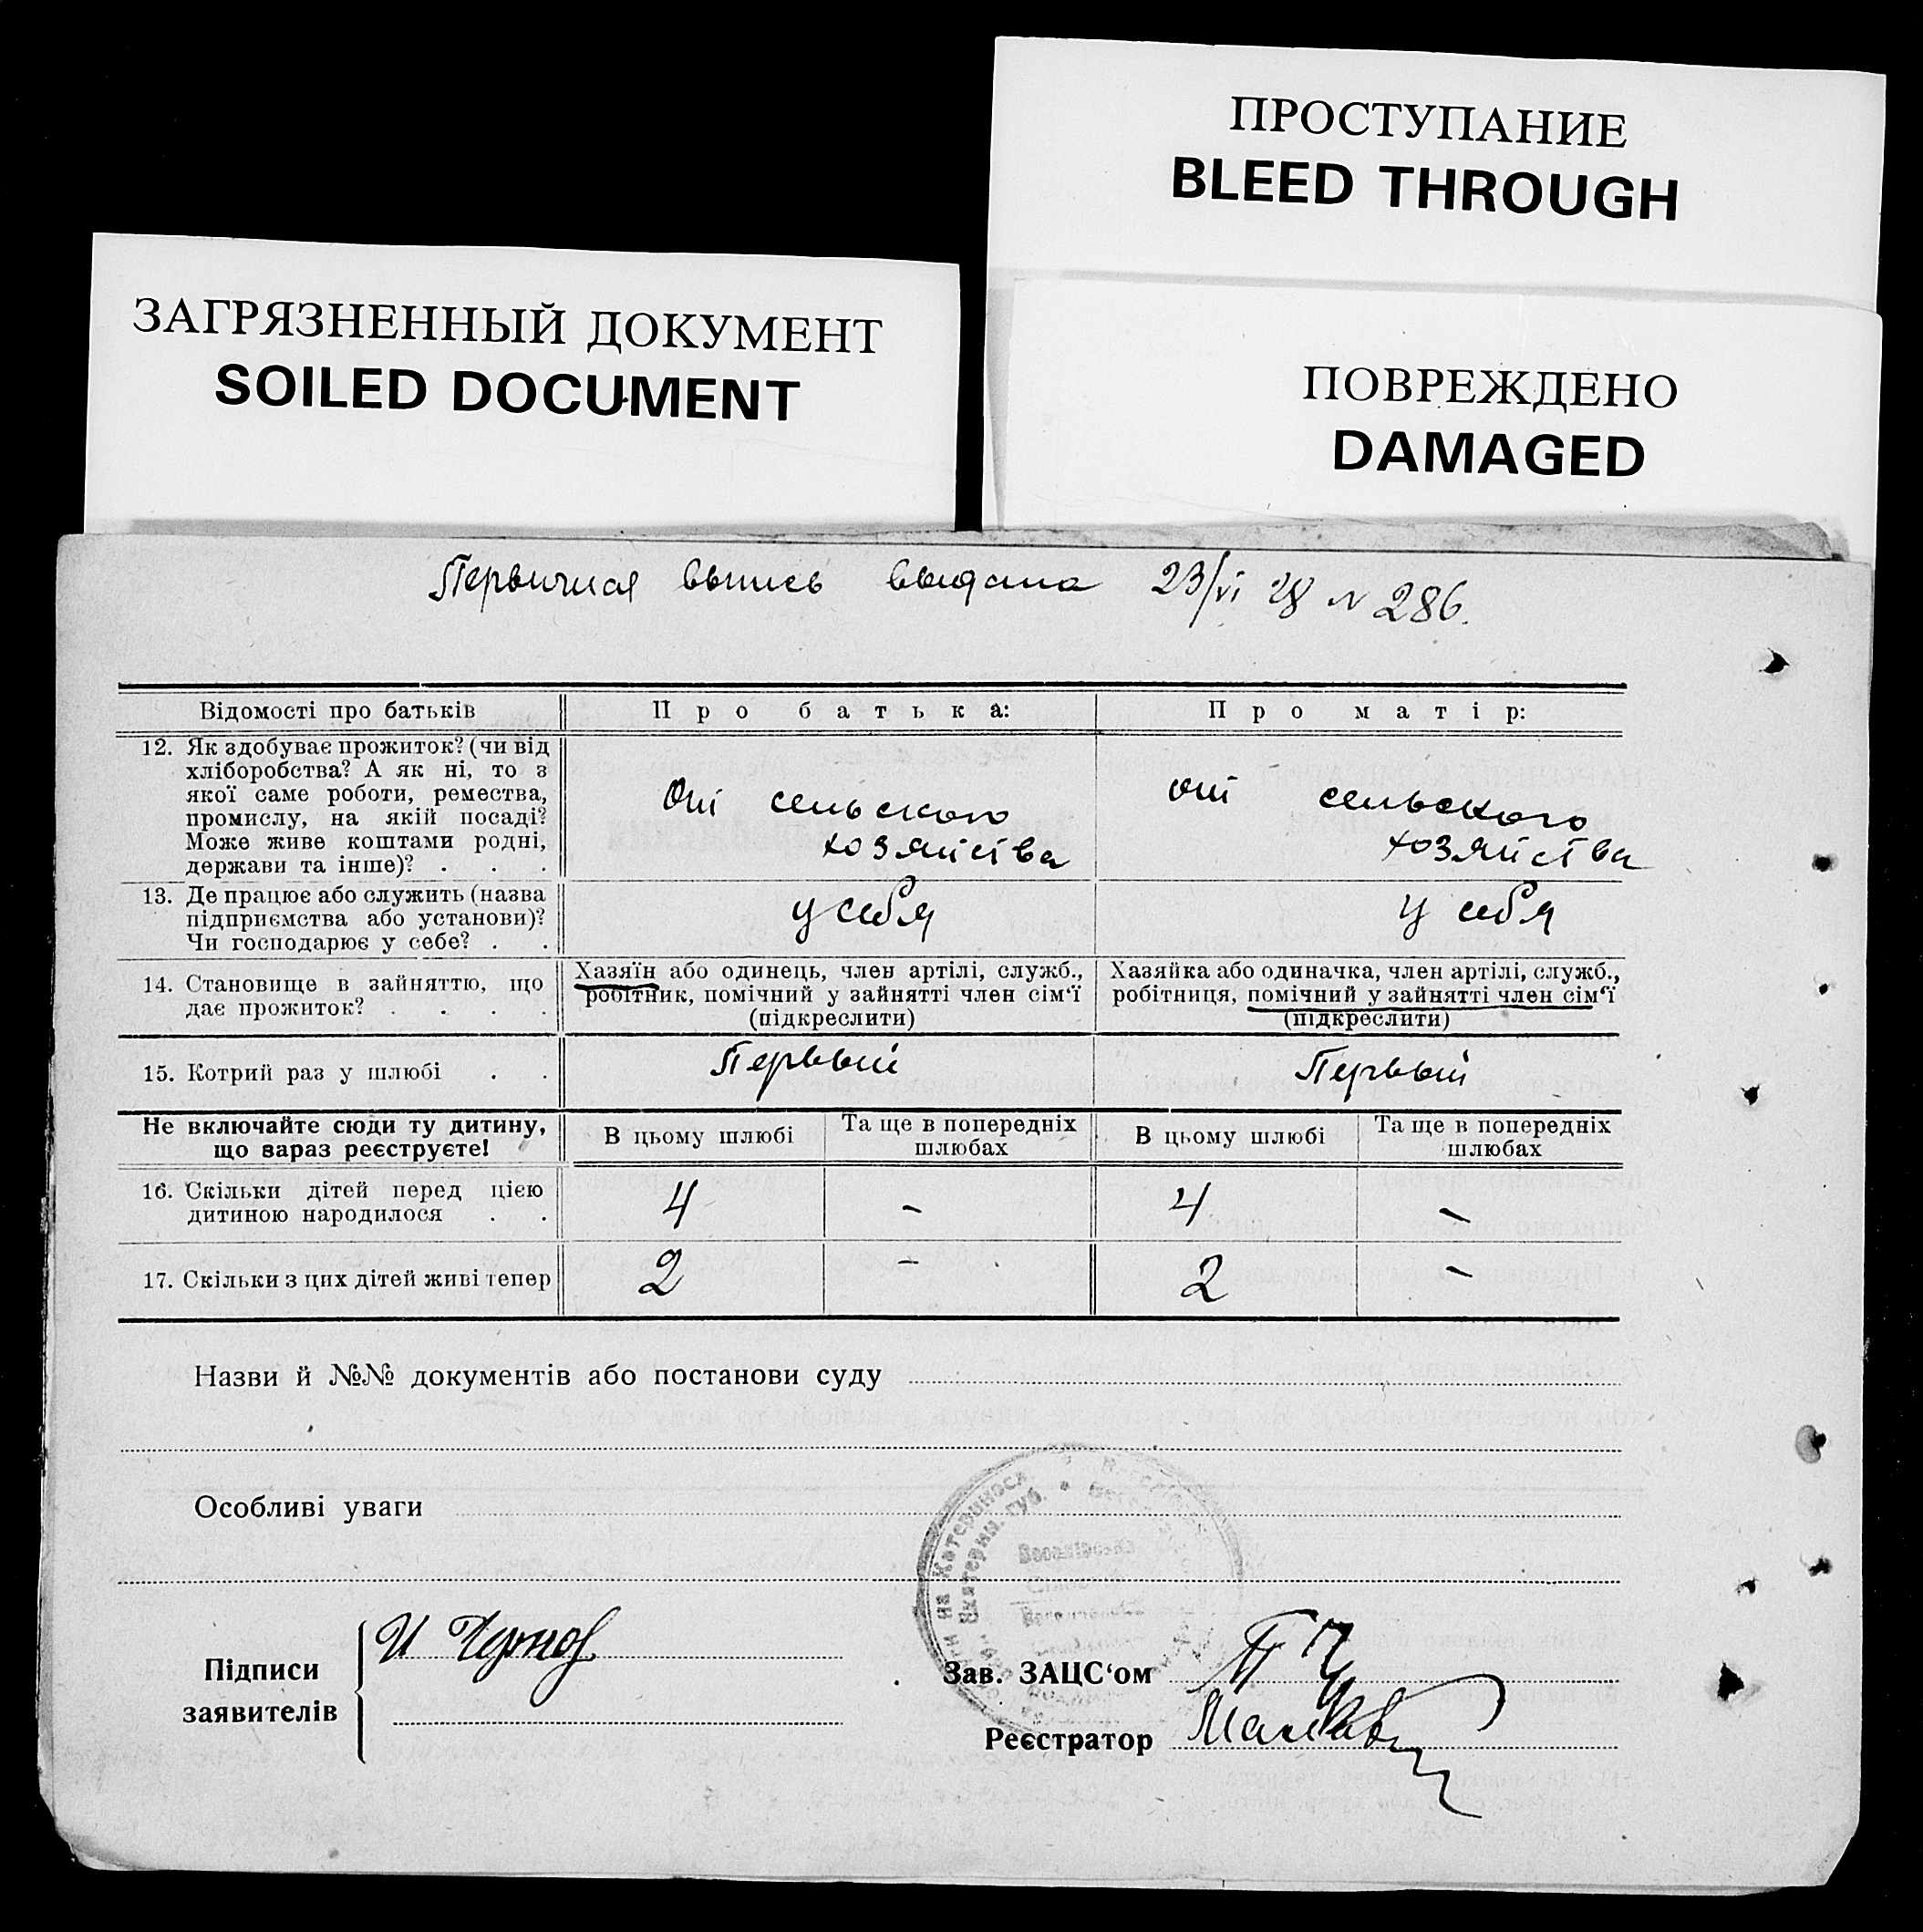 ПРОСТУПАНИЕ
BLEED THROUGH
ЗАГРЯЗНЕННЫЙ ДОКУМЕНТ
SOILED DOCUMENT
ПОВРЕЖДЕНО
DAMAGED
Первичная выпись выдана 23/VI 28 N 286.
Відомості про батьків
Про батька:
Про матір:
12. Як здобуває прожиток? (чи від
хліборобства? А як ні, то з
якої саме роботи, ремества,
промислу, на якій посаді?
Може живе коштами родні,
держави та інше)? . . .
От сельского
хозяйства
от сельского
хозяйства
13. Де працює або служить (назва
підприємства або установи)?
Чи господарює у себе? . .
у себя
у себя
14. Становище в зайняттю, що
дає прожиток? . . . .
Хазяїн або одинець, член артілі, служб.,
робітник, помічний у зайнятті член сім‘ї
(підкреслити)
Хазяйка або одиначка, член артілі, служб.,
робітниця, помічний у зайнятті член сім‘ї
(підкреслити)
15. Котрий раз у шлюбі . .
Первый
Первый
Не включайте сюди ту дитину,
що зараз реєструєте!
В цьому шлюбі
Та ще в попередніх
шлюбах
В цьому шлюбі
Та ще в попередніх
шлюбах
16. Скільки дітей перед цією
дитиною народилося . .
4
-
4
-
17. Скільки з цих дітей живі тепер
2
-
2
-
Назви й №№ документів або постанови суду
Особливі уваги
на Катеринос
Екатерин. губ.
Підписи
заявителів
И Чернов
Зав. ЗАЦС‘ом
Реєстратор